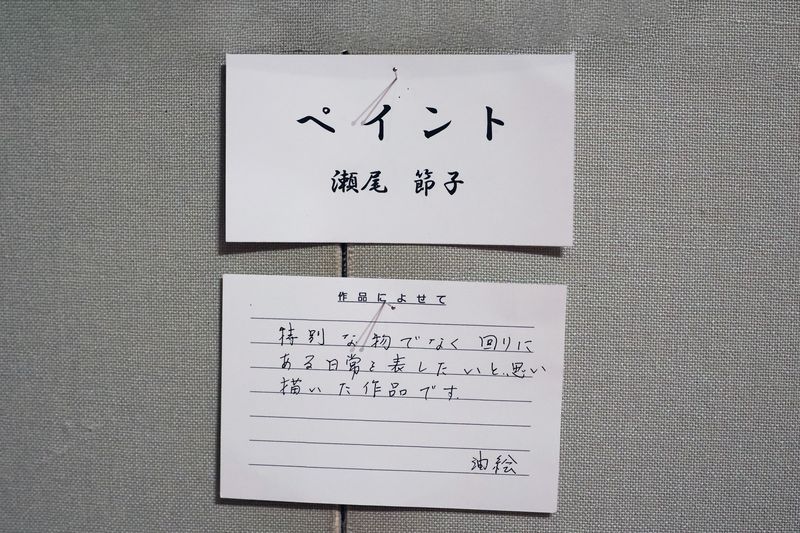 ペイント
瀬尾 節子
作品によせて
特別な物でなく 回りに
ある日常を表したいと思い
描いた作品です。
油絵